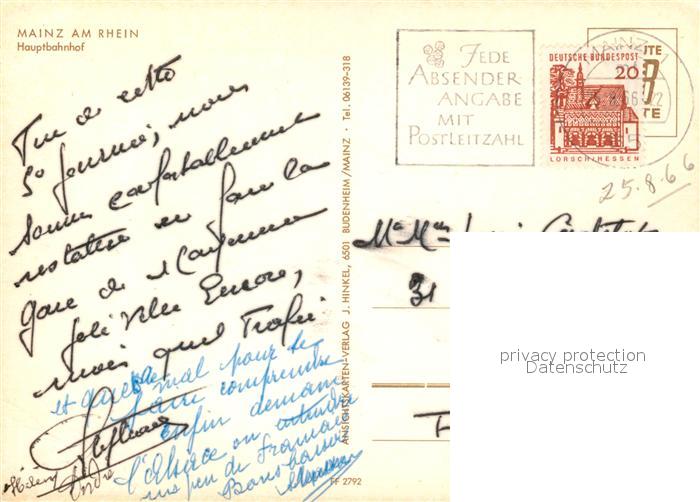 MAINZ AM RHEIN
Hauptbahnhof
JEDE
ABSENDER-
ANGABE
MIT
POSTLEITZAHL
DEUTSCHE BUNDESPOST
20
LORSCH/HESSEN
MAINZ
25.8.66
Fin de cette
5e journée, nous
sommes confortablement
en face la
gare de Mayence
jolie ville Encore,
mais quel Trafic
et quel mal pour se
faire comprendre
enfin demain
l'Alsace on entendra
un peu de Français
Bons baisers
ANSICHTSKARTEN-VERLAG J. HINKEL, 6501 BUDENHEIM/MAINZ · Tel. 06139-318
FF 2792
31
privacy protection
Datenschutz